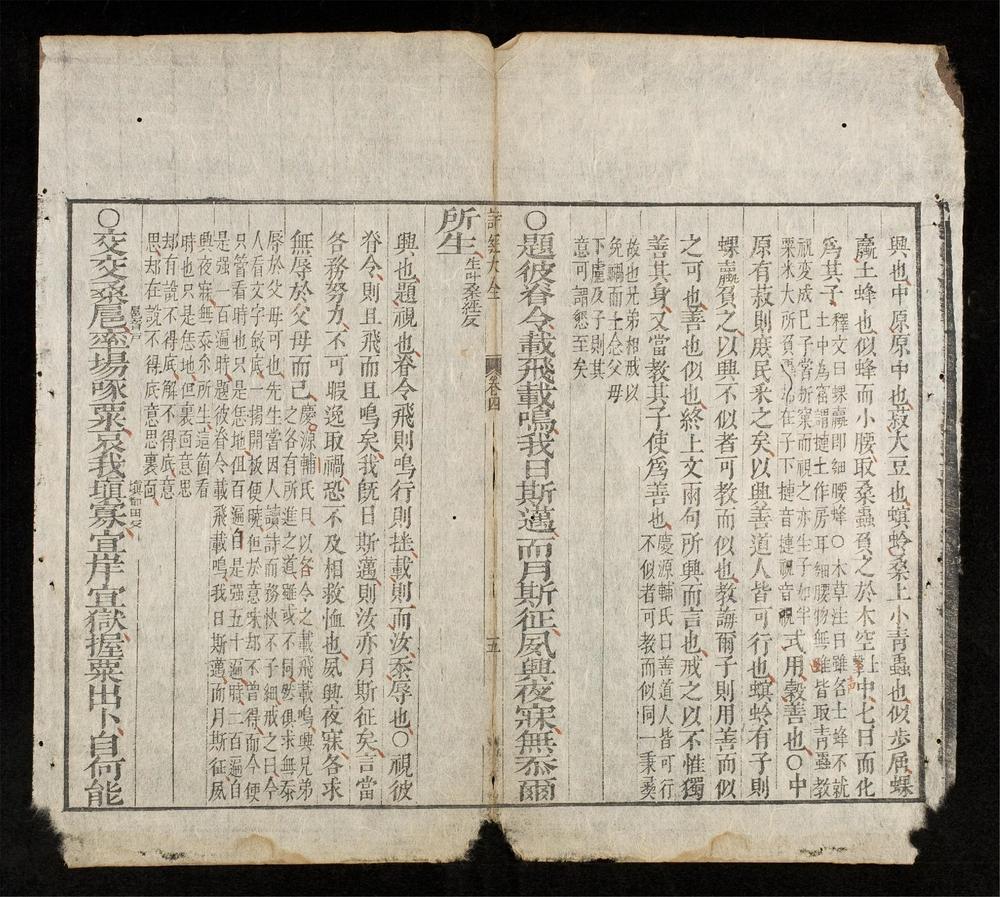 興也中原原中也菽大豆也螟蛉桑上小青蟲也似步屈蜾
蠃土蜂也似蜂而小腰取桑蟲負之於木空中七日而化
爲其子釋文曰蜾蠃即細腰蜂○本草注曰雖名土蜂不就
土中為窟謂摙土作房耳細腰物無雌皆取青蟲教
祝變成己子嘗折窠而視之亦生子如半
粟米大所負在子下摙音摙祝音祝
式用穀善也○中
原有菽則庶民采之矣以興善道人皆可行也螟蛉有子則
蜾蠃負之以興不似者可教而似也教誨爾子則用善而似
之可也善也似也終上文兩句所興而言也戒之以不惟獨
善其身又當教其子使爲善也
慶源輔氏曰善道人皆可行
不似者可教而似同一秉彝
故也兄弟相戒以
免禍而上念父母
下慮及子則其
意可謂懇至矣
○題彼脊令載飛載鳴我日斯邁而月斯征夙興夜寐無忝爾
詩經大全
卷四
五
所生
生叶桑經反
興也題視也脊令飛則鳴行則搖載則而汝忝辱也○視彼
脊令則且飛而且鳴矣我旣日斯邁則汝亦月斯征矣言當
各務努力不可暇逸取禍恐不及相救恤也夙興夜寐各求
無辱於父母而已
慶源輔氏曰以脊令之載飛載鳴興兄弟
之各有所進之道雖或不同然俱求無忝
辱於父母可也先生嘗因人讀詩而務快不子細戒之曰今
人看文字敏底一揭開板便曉但於意味却不曾得而今便
只管看時也只是恁地但百遍自是強五十遍時二百遍自
是強一百遍時題彼脊令載飛載鳴我日斯邁而月斯征夙
興夜寐無忝尔所生這箇看
時也只是恁地但裏面意思
却有說不得底解不得底意
思却在說不得底意思裏面
○交交桑扈率場啄粟哀我塡寡宜岸宜獄握粟出卜自何能
扈音戶
塡都田反